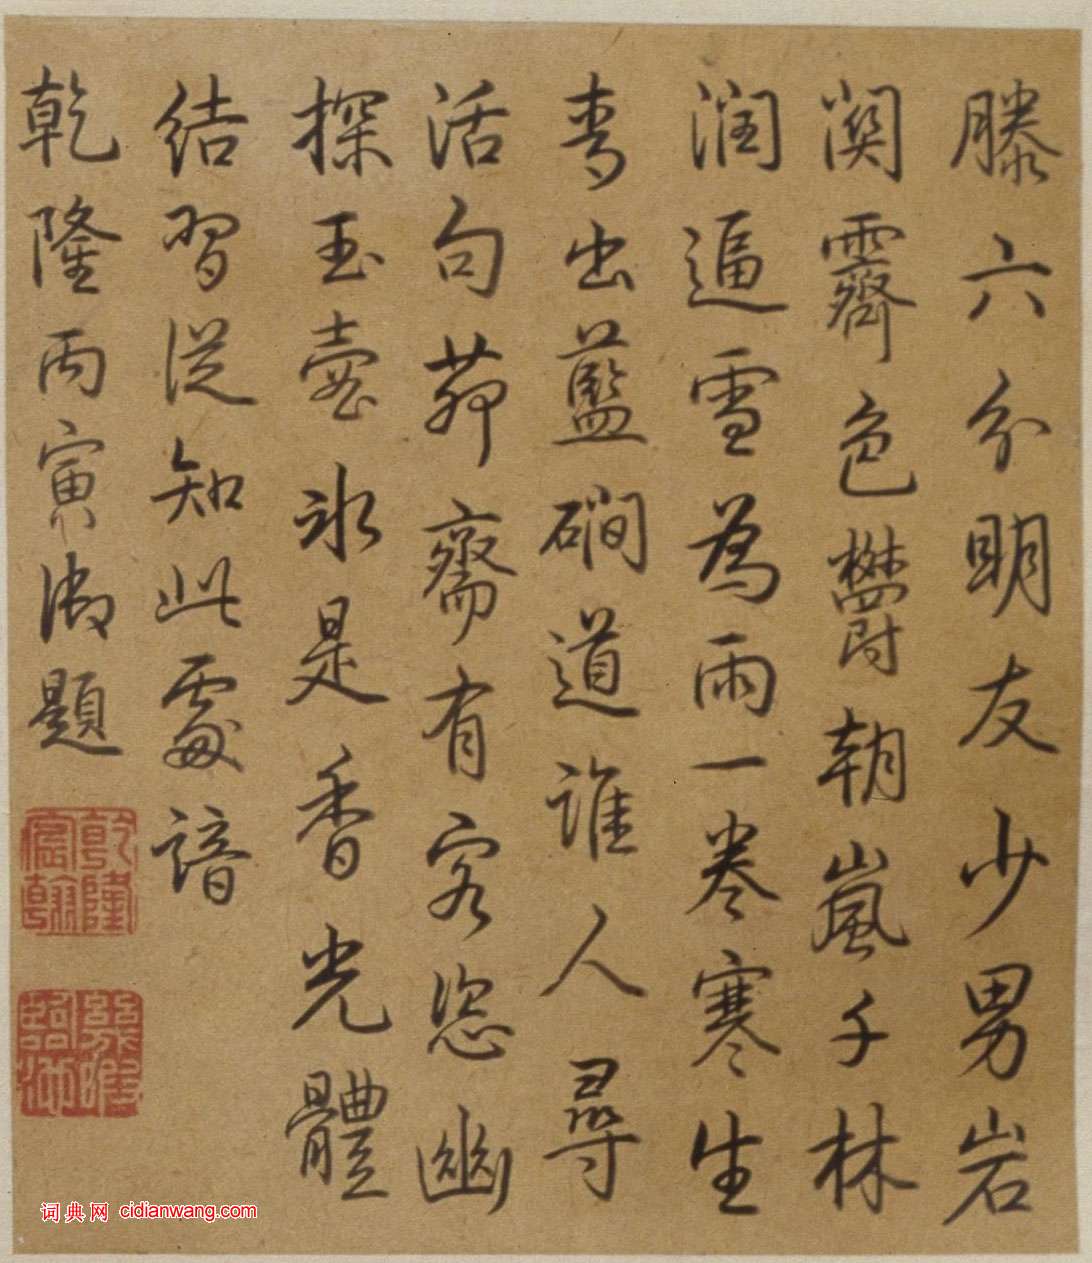 滕六分明友少男岩
関霽色鬱朝嵐千林
润逼雪為雨一卷寒生
青出藍磵道谁人尋
活句茆齋有客恣幽
探玉壺氷是香光體
结習從知此處諳
乾隆丙寅御題
乾隆宸翰
幾暇臨池
词典网 cidianwang.com